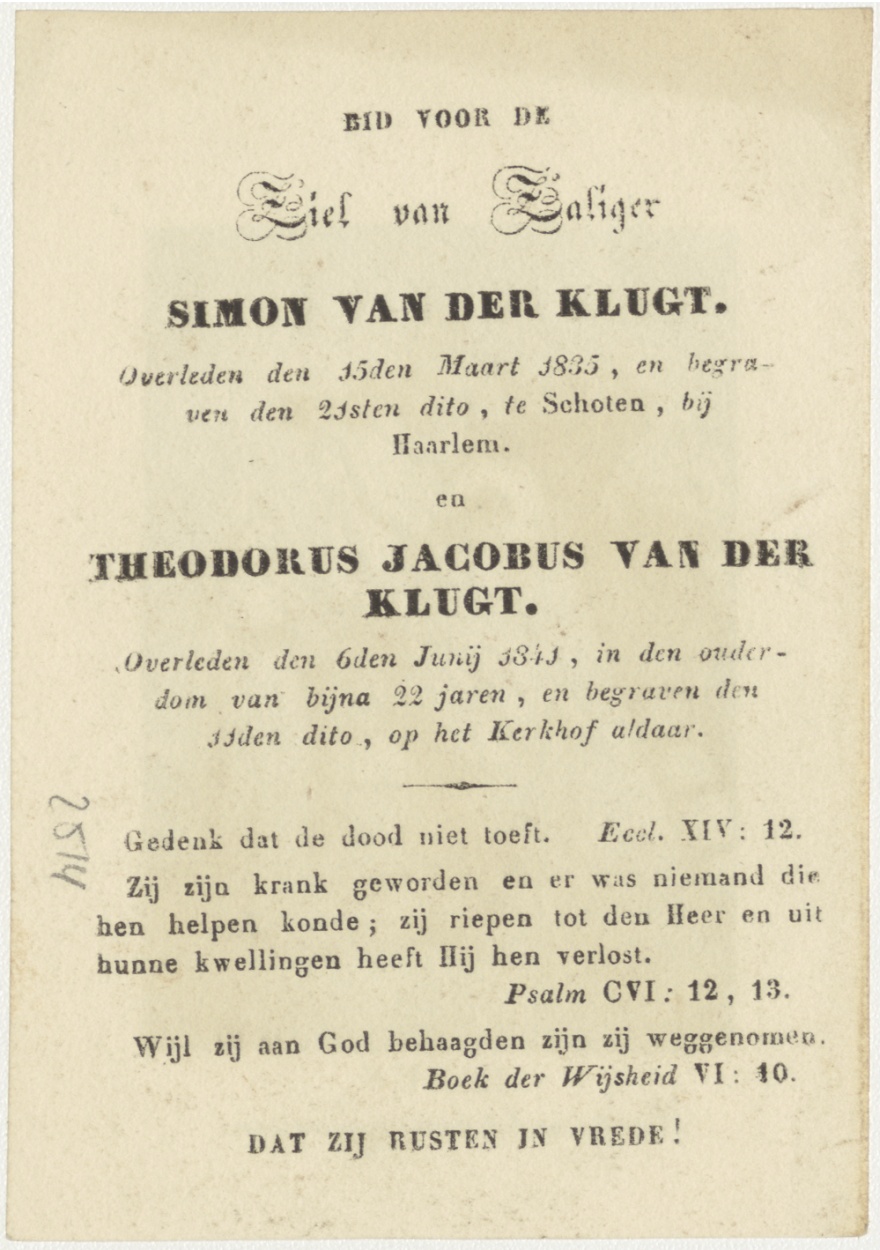 BID VOOR DE
Ziel van Zaliger
SIMON VAN DER KLUGT.
Overleden den 15den Maart 1835, en begra-
ven den 21sten dito, te Schoten, bij
Haarlem.
en
THEODORUS JACOBUS VAN DER
KLUGT.
Overleden den 6den Junij 1841, in den ouder-
dom van bijna 22 jaren, en begraven den
11den dito, op het Kerkhof aldaar.
Gedenk dat de dood niet toeft. Eccl. XIV: 12.
Zij zijn krank geworden en er was niemand die
hen helpen konde; zij riepen tot den Heer en uit
hunne kwellingen heeft Hij hen verlost.
Psalm CVI: 12, 13.
Wijl zij aan God behaagden zijn zij weggenomen.
Boek der Wijsheid VI: 10.
DAT ZIJ RUSTEN IN VREDE!
2514